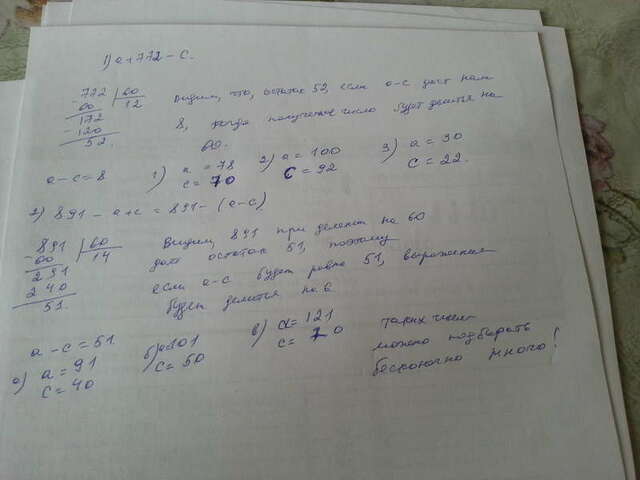 1) a+772-c.
772 | 60
- 60 12
172
- 120
52.
Видим, что, остаток 52, если a-c даст нам
8, тогда полученное число будет делится на
60.
a-c=8 1) a=78 2) a=100 3) a=30
c=70 c=92 c=22.
2) 891-a+c=891-(a-c)
- 891 | 60
60 14
291
240
51.
Видим, 891 при делении на 60
даст остаток 51, поэтому
если a-c будет равна 51, выражение
будет делится на 6
a-c=51.
а) a=91 б) a=101 в) a=121
c=40 c=50 c=70
таких чисел
можно подбирать
бесконечно много!